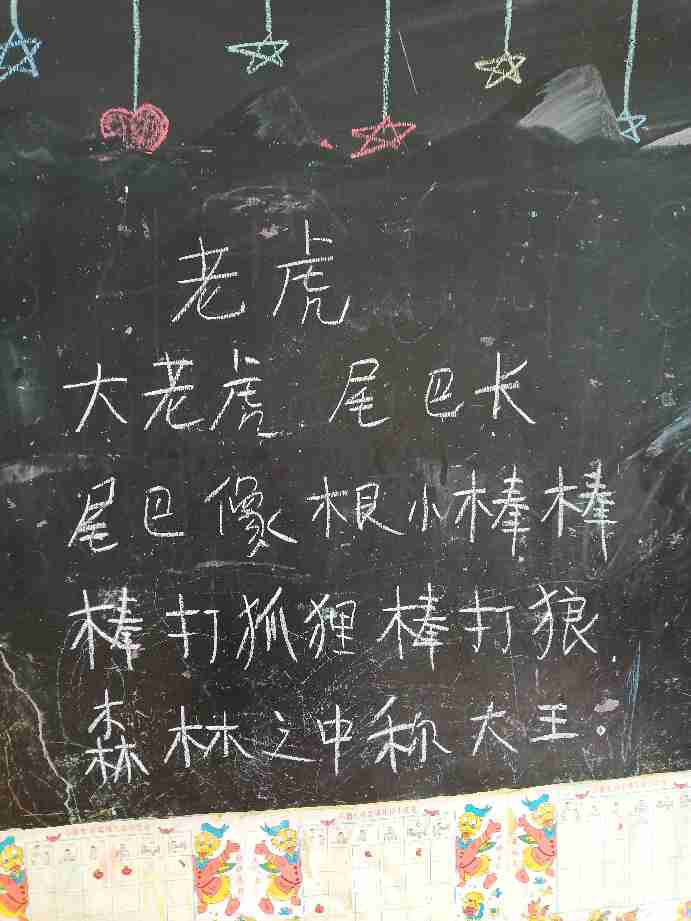 老虎
大老虎 尾巴长
尾巴像根小棒棒
棒打狐狸棒打狼
森林之中称大王。